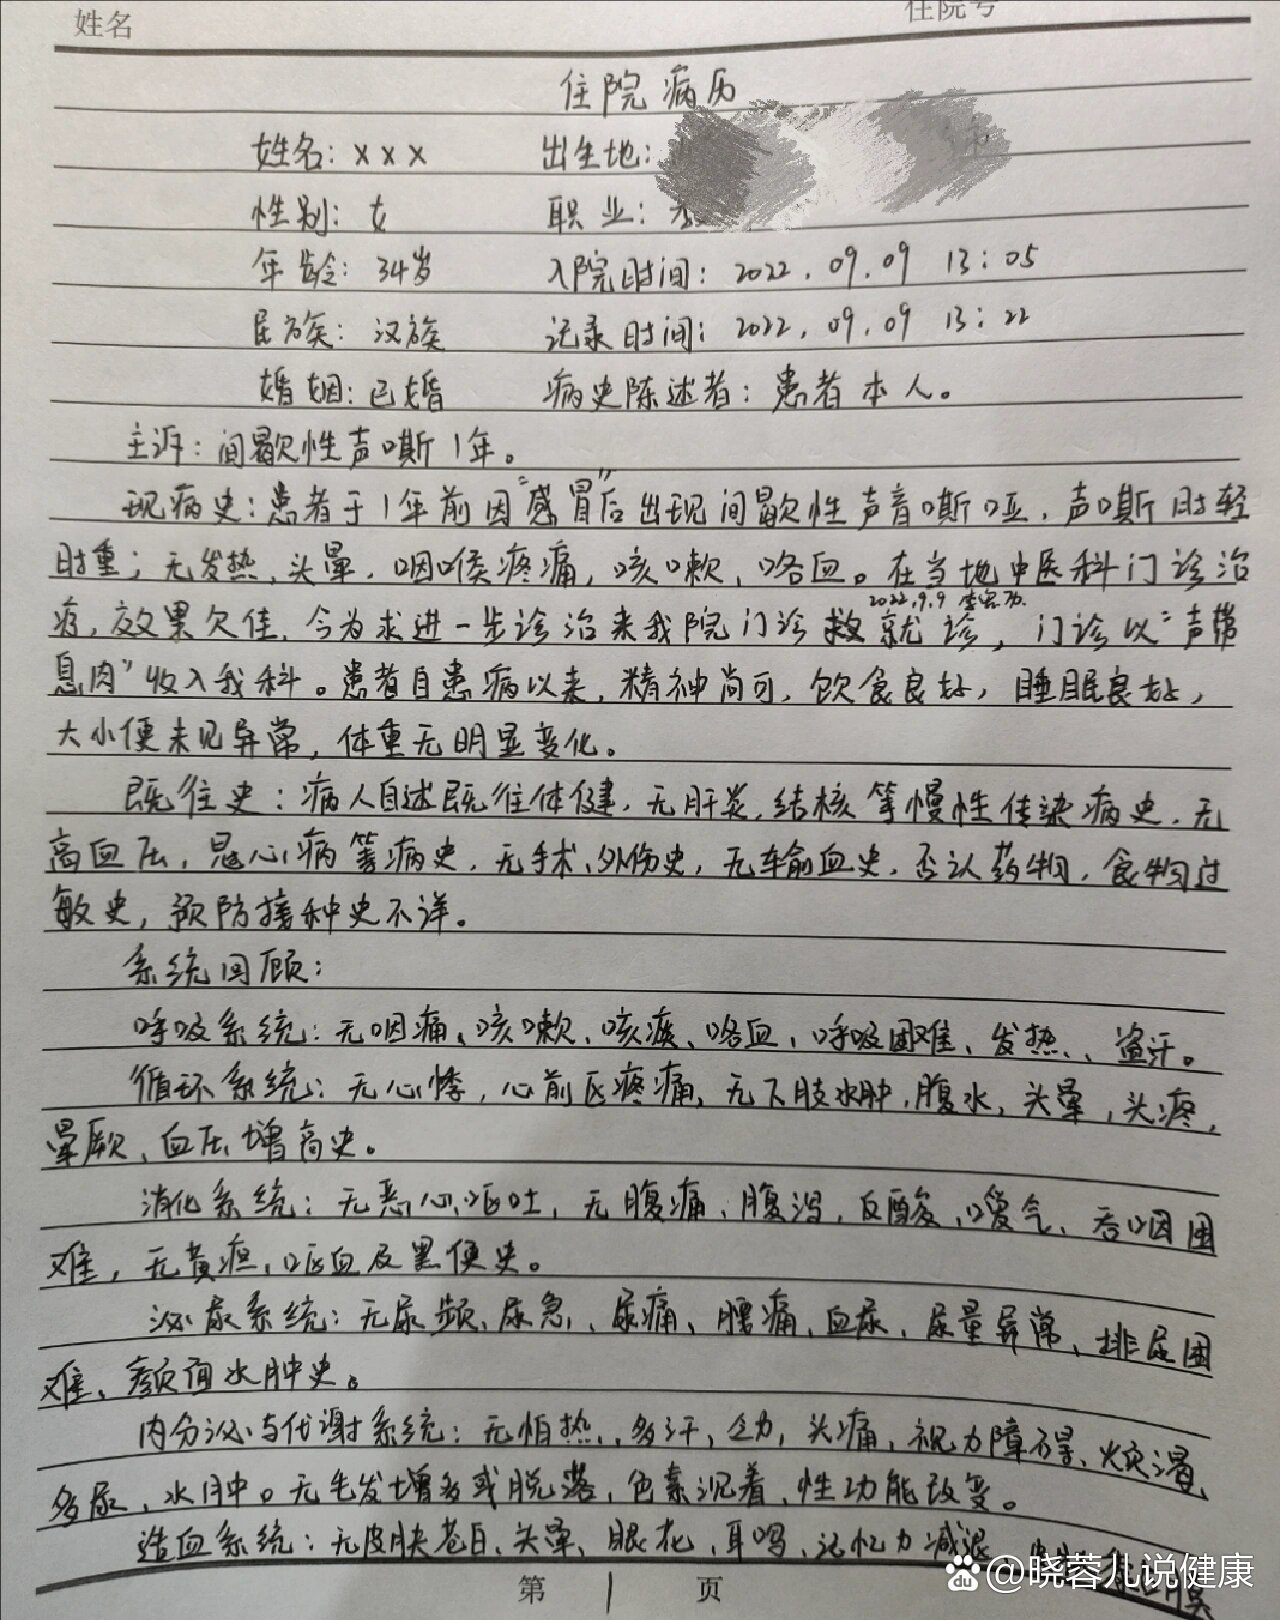 姓名 住院号
住院病历
姓名：xxx 出生地：
性别：女 职业：
年龄：34岁 入院时间：2022.09.09 13:05
民族：汉族 记录时间：2022.09.09 13:22
婚姻：已婚 病史陈述者：患者本人。
主诉：间歇性声嘶1年。
现病史：患者于1年前因“感冒”后出现间歇性声音嘶哑，声嘶时轻
时重；无发热，头晕，咽喉疼痛，咳嗽、咯血。在当地中医科门诊治
2022.9.9
疗，效果欠佳，今为求进一步诊治来我院门诊救就诊，门诊以“声带
息肉”收入我科。患者自患病以来，精神尚可，饮食良好，睡眠良好，
大小便未见异常，体重无明显变化。
既往史：病人自述既往体健，无肝炎，结核等慢性传染病史，无
高血压，冠心病等病史，无手术、外伤史，无输血史，否认药物，食物过
敏史，预防接种史不详。
系统回顾：
呼吸系统：无咽痛、咳嗽、咳痰、咯血、呼吸困难、发热、盗汗。
循环系统：无心悸，心前区疼痛，无下肢水肿，腹水，头晕，头疼，
晕厥、血压增高史。
消化系统：无恶心呕吐，无腹痛、腹泻，反酸，嗳气、吞咽困
难，无黄疸，呕血及黑便史。
泌尿系统：无尿频、尿急、尿痛、腰痛、血尿，尿量异常、排尿困
难、颜面水肿史。
内分泌与代谢系统：无怕热，多汗，乏力，头痛，视力障碍、烦渴，
多尿，水肿。无毛发增多或脱落，色素沉着，性功能改变。
造血系统：无皮肤苍白、头晕、眼花，耳鸣，记忆力减退
第 1 页
Bai du @晓蓉儿说健康